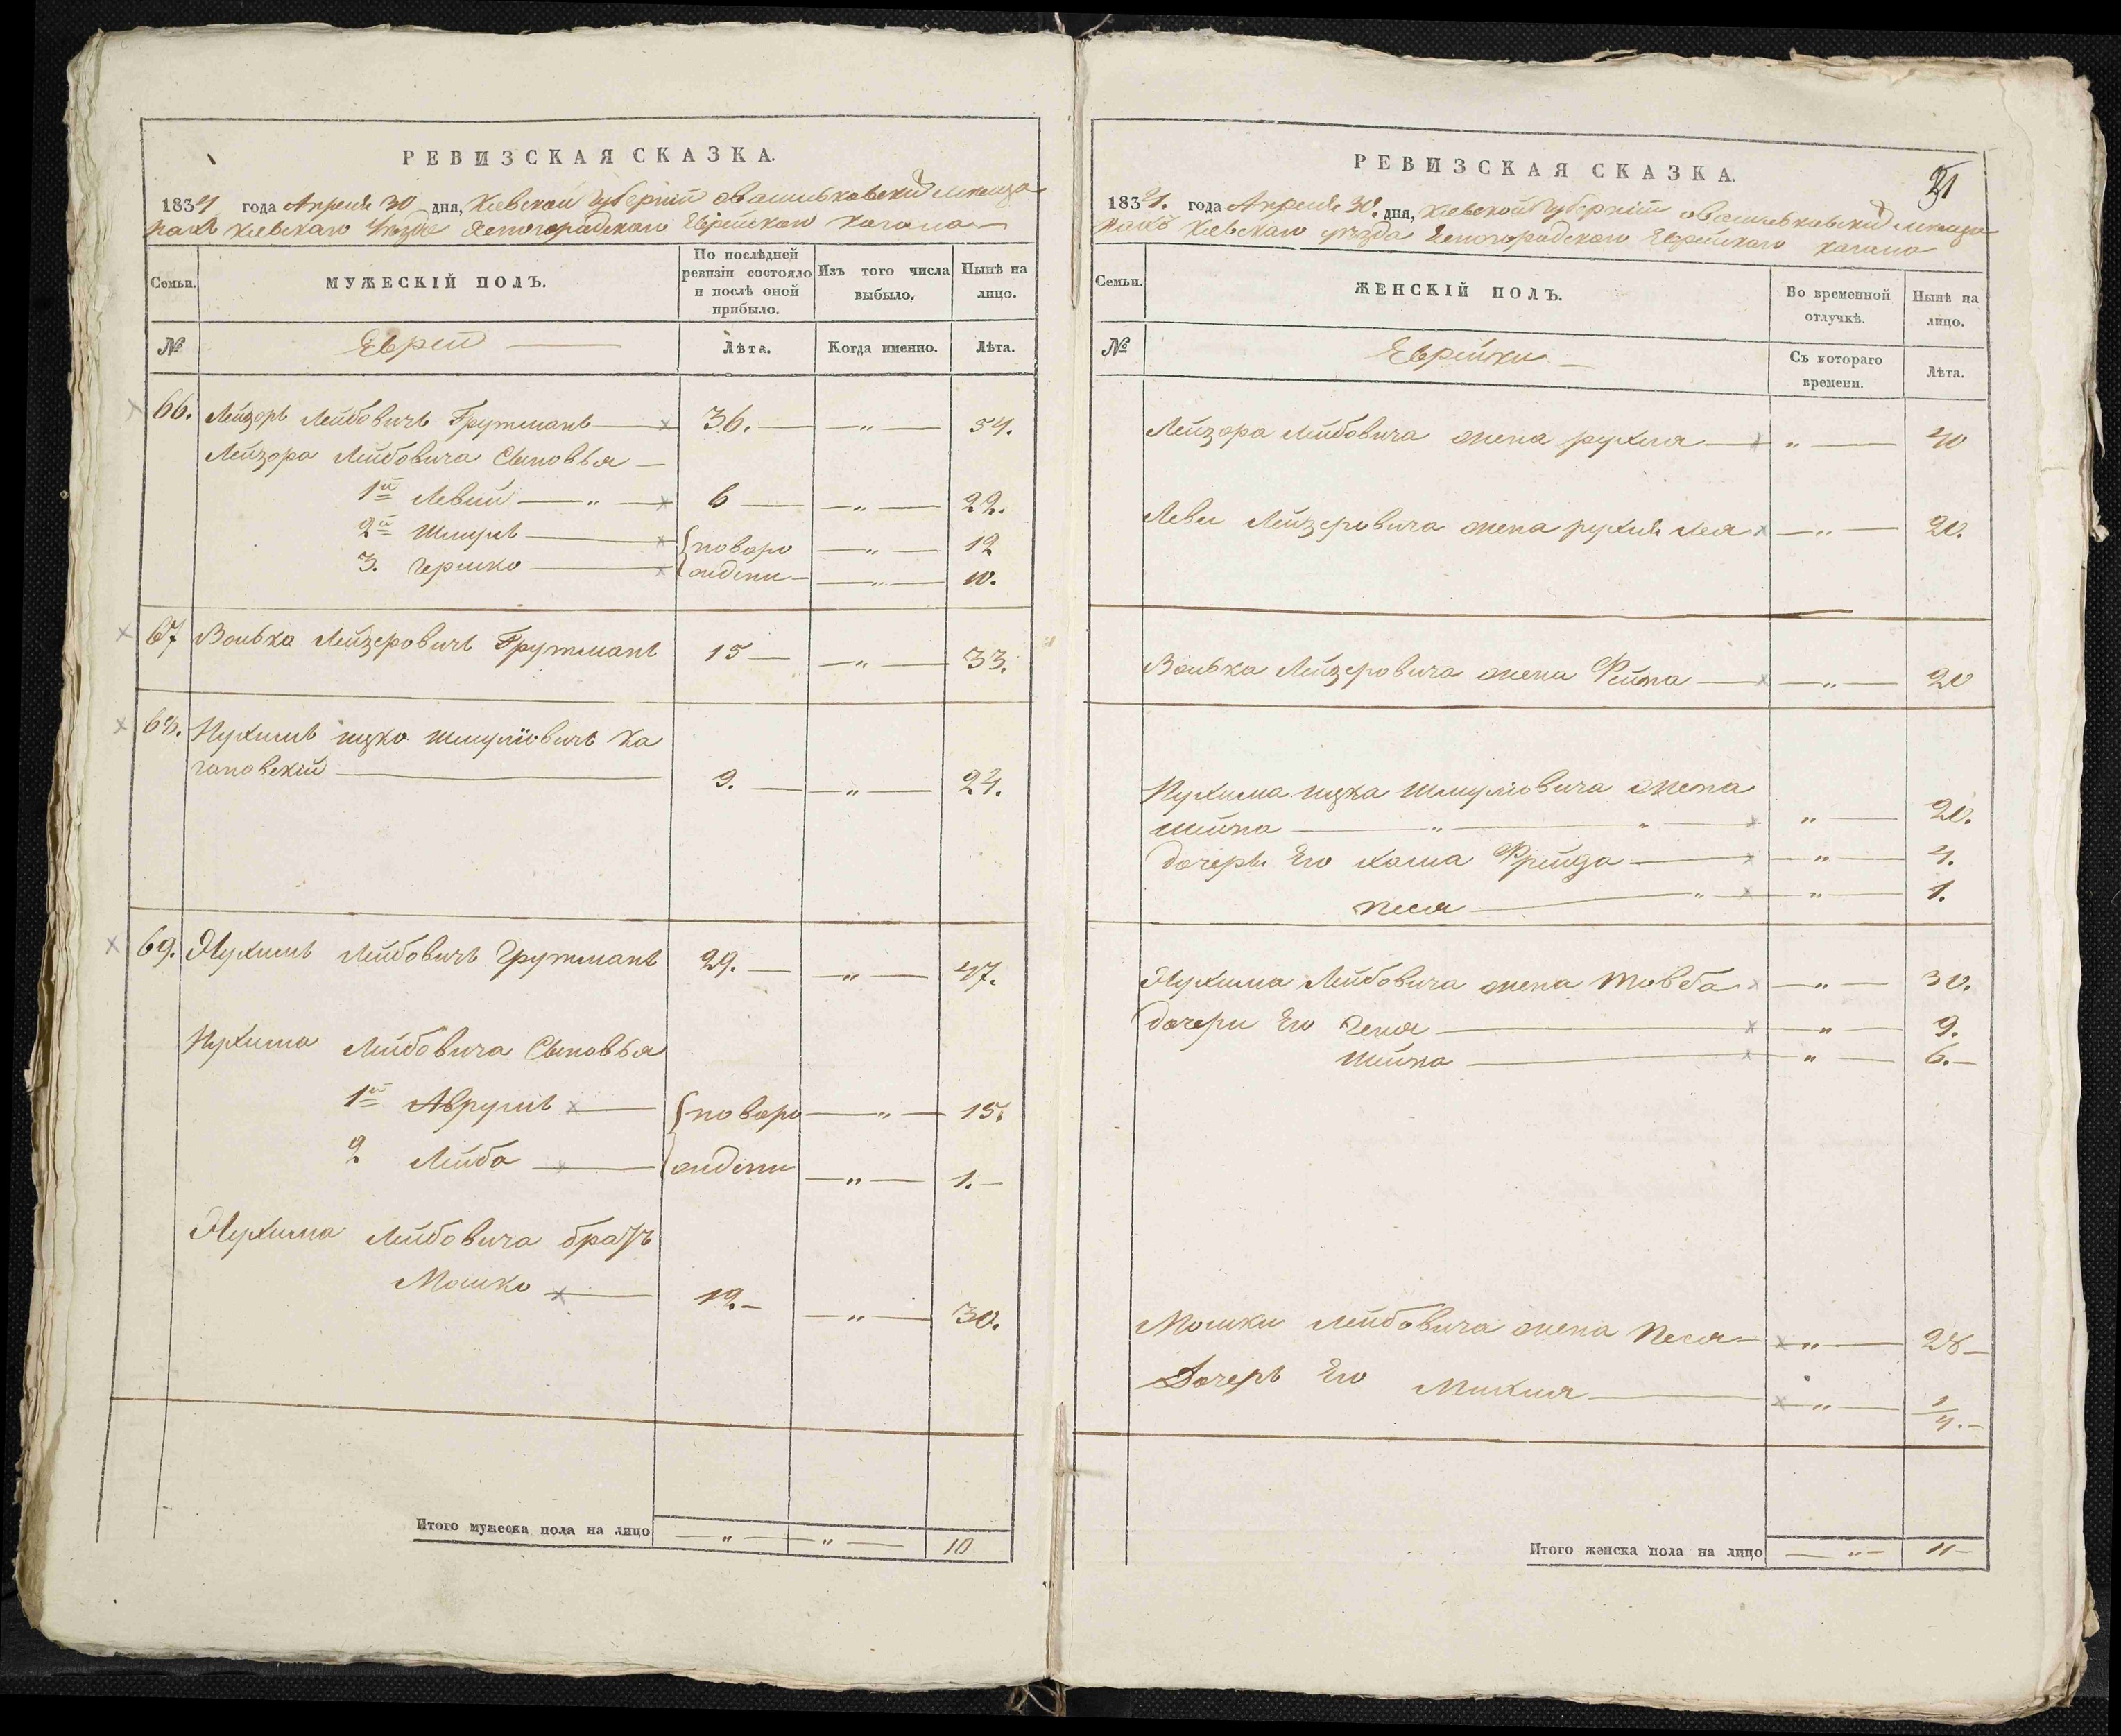 РЕВИЗСКАЯ СКАЗКА.
1834 года Апреля 30 дня, Киевской Губернии о Васильковских мещанахъ Киевскаго Уезда Ясногородскаго Еврейскаго Кагала
Семьи.
МУЖЕСКІЙ ПОЛЪ.
По послѣдней ревизіи состояло и послѣ оной прибыло.
Изъ того числа выбыло.
Нынѣ на лицо.
№
Евреи
Лѣта.
Когда именно.
Лѣта.
66. Лейзоръ Лейбовичъ Грутманъ 36. — „ — 54.
Лейзора Лейбовича Сыновья
1й Левий — „ — 6 — „ — 22.
2й Шмуль { новоро — „ — 12
3. Гершко { ждени — „ — 10.
67 Волька Лейзеровичъ Грутманъ 15 — „ — 33.
68. Нухимъ ицко Шмуліовичъ Ка
гановскій 9. — „ — 24.
69. Нухимъ Лейбовичъ Грутманъ 29. — „ — 47.
Нухима Лейбовича Сыновья
1й Аврумъ { новоро — „ — 15.
2 Лейба { ждени — „ — 1.
Нухима Лейбовича братъ
Мошко 12. — „ — 30.
Итого мужеска пола на лицо — „ — „ — 10
РЕВИЗСКАЯ СКАЗКА.
31
1834. года Апреля 30. дня, Киевской Губерніи о Васильковских мещанахъ Киевскаго уезда Ясногородскаго Еврейскаго Кагала
Семьи.
ЖЕНСКІЙ ПОЛЪ.
Во временной отлучкѣ.
Нынѣ на лицо.
№
Еврейки
Съ котораго времени.
Лѣта.
Лейзора Лейбовича жена рухля „ — 40
Леви Лейзеровича жена рухля лея — „ — 20.
Волька Лейзеровича жена Фейга — „ — 20
Нухима ицка Шмуліовича жена
Шейна — „ — „ — „ — 20.
дочерь Его хаша Фрейда — „ — 4.
песя — „ — „ — 1.
Нухима Лейбовича жена Товба — „ — 30.
дочери Его Геня — „ — 9.
Шейна — „ — 6.
Мошки Лейбовича жена Песя — „ — 28
Дочерь Его Михля — „ — 1/4.
Итого женска пола на лицо — „ — 11